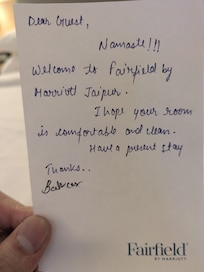 Dear Guest,
Namaste!!!
Welcome to Fairfield by
Marriott Jaipur.
I hope your room
is comfortable and clean.
Have a present stay
Thanks..
Fairfield
BY MARRIOTT